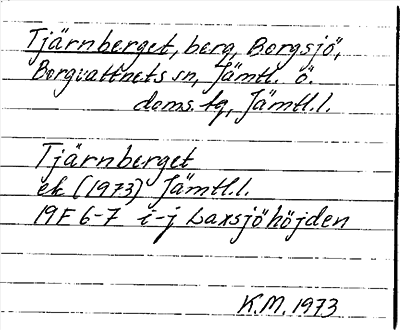 Tjärnberget, berg, Borgsjö,
Borgvattnets sn, Jämtl. ö.
doms. tg, Jämtl.l.
Tjärnberget
ek (1973) Jämtl.l.
19F 6-7 i-j Laxsjöhöjden
K.M. 1973